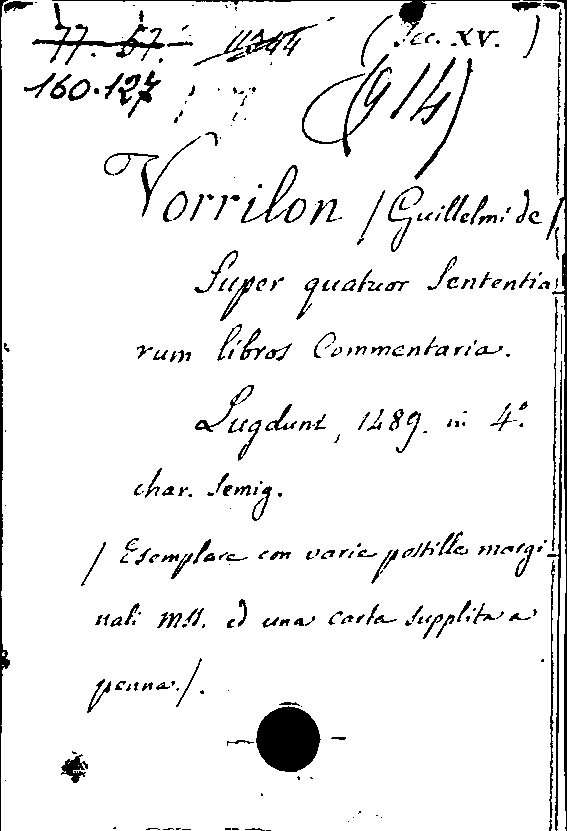 77. 57. (Sec. XV.)
160.127
(914)
Vorrilon /Guillelmi de/
Super quatuor Sententia-
rum libros Commentaria.
Lugduni, 1489. in 4º.
char. Semig.
/Esemplare con varie postille margi-
nali mss. ed una carta supplita a
penna./.